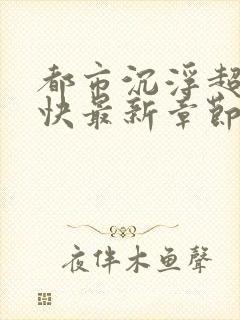 都市沉浮超
快最新章節
夜伴木鱼聲